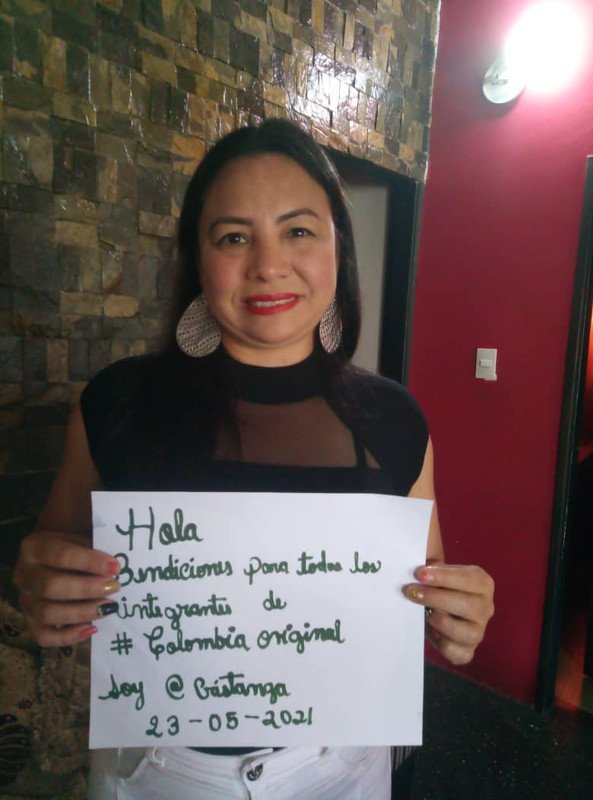 Hola
Bendiciones para todos los
integrantes de
# Colombia original
Soy @ Cristanza
23-05-2021